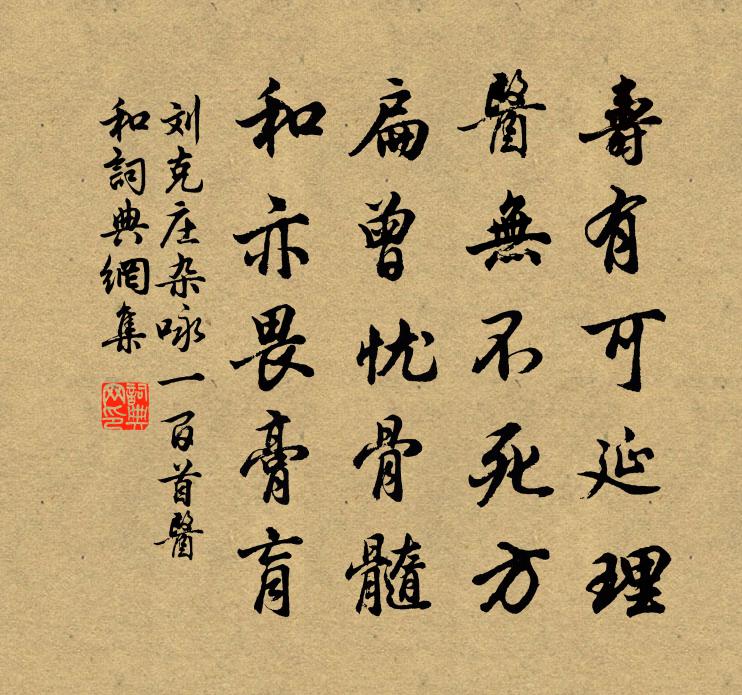 壽有可延理
醫無不死方
扁曾忧骨髓
和亦畏膏肓
刘克庄杂咏一百首醫
和詞典網集
詞典
网印